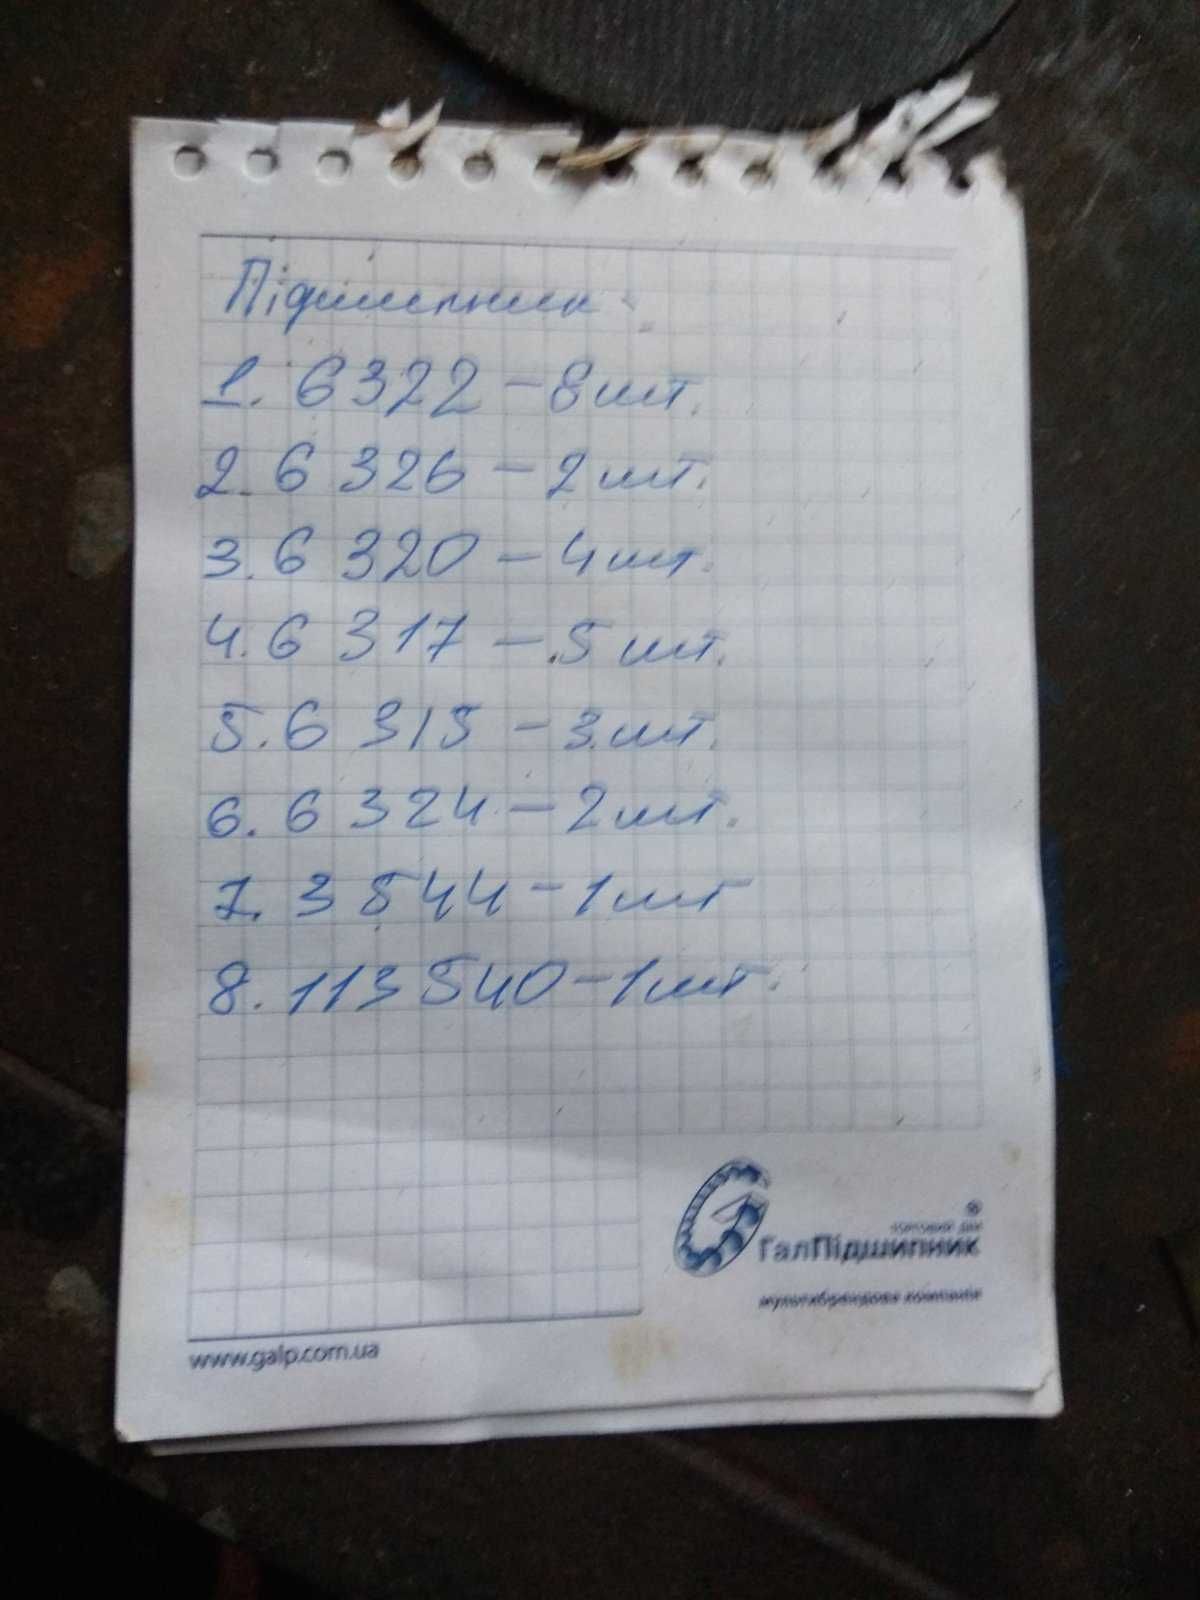 Підшипник
1. 6322 - 8 шт.
2. 6 326 - 2 шт.
3. 6 320 - 4 шт.
4. 6 317 - 5 шт.
5. 6 315 - 3 шт.
6. 6 324 - 2 шт.
7. 3 544 - 1 шт
8. 113 540 - 1 шт.
®
ГалПідшипник
мультибрендова компанія
www.galp.com.ua